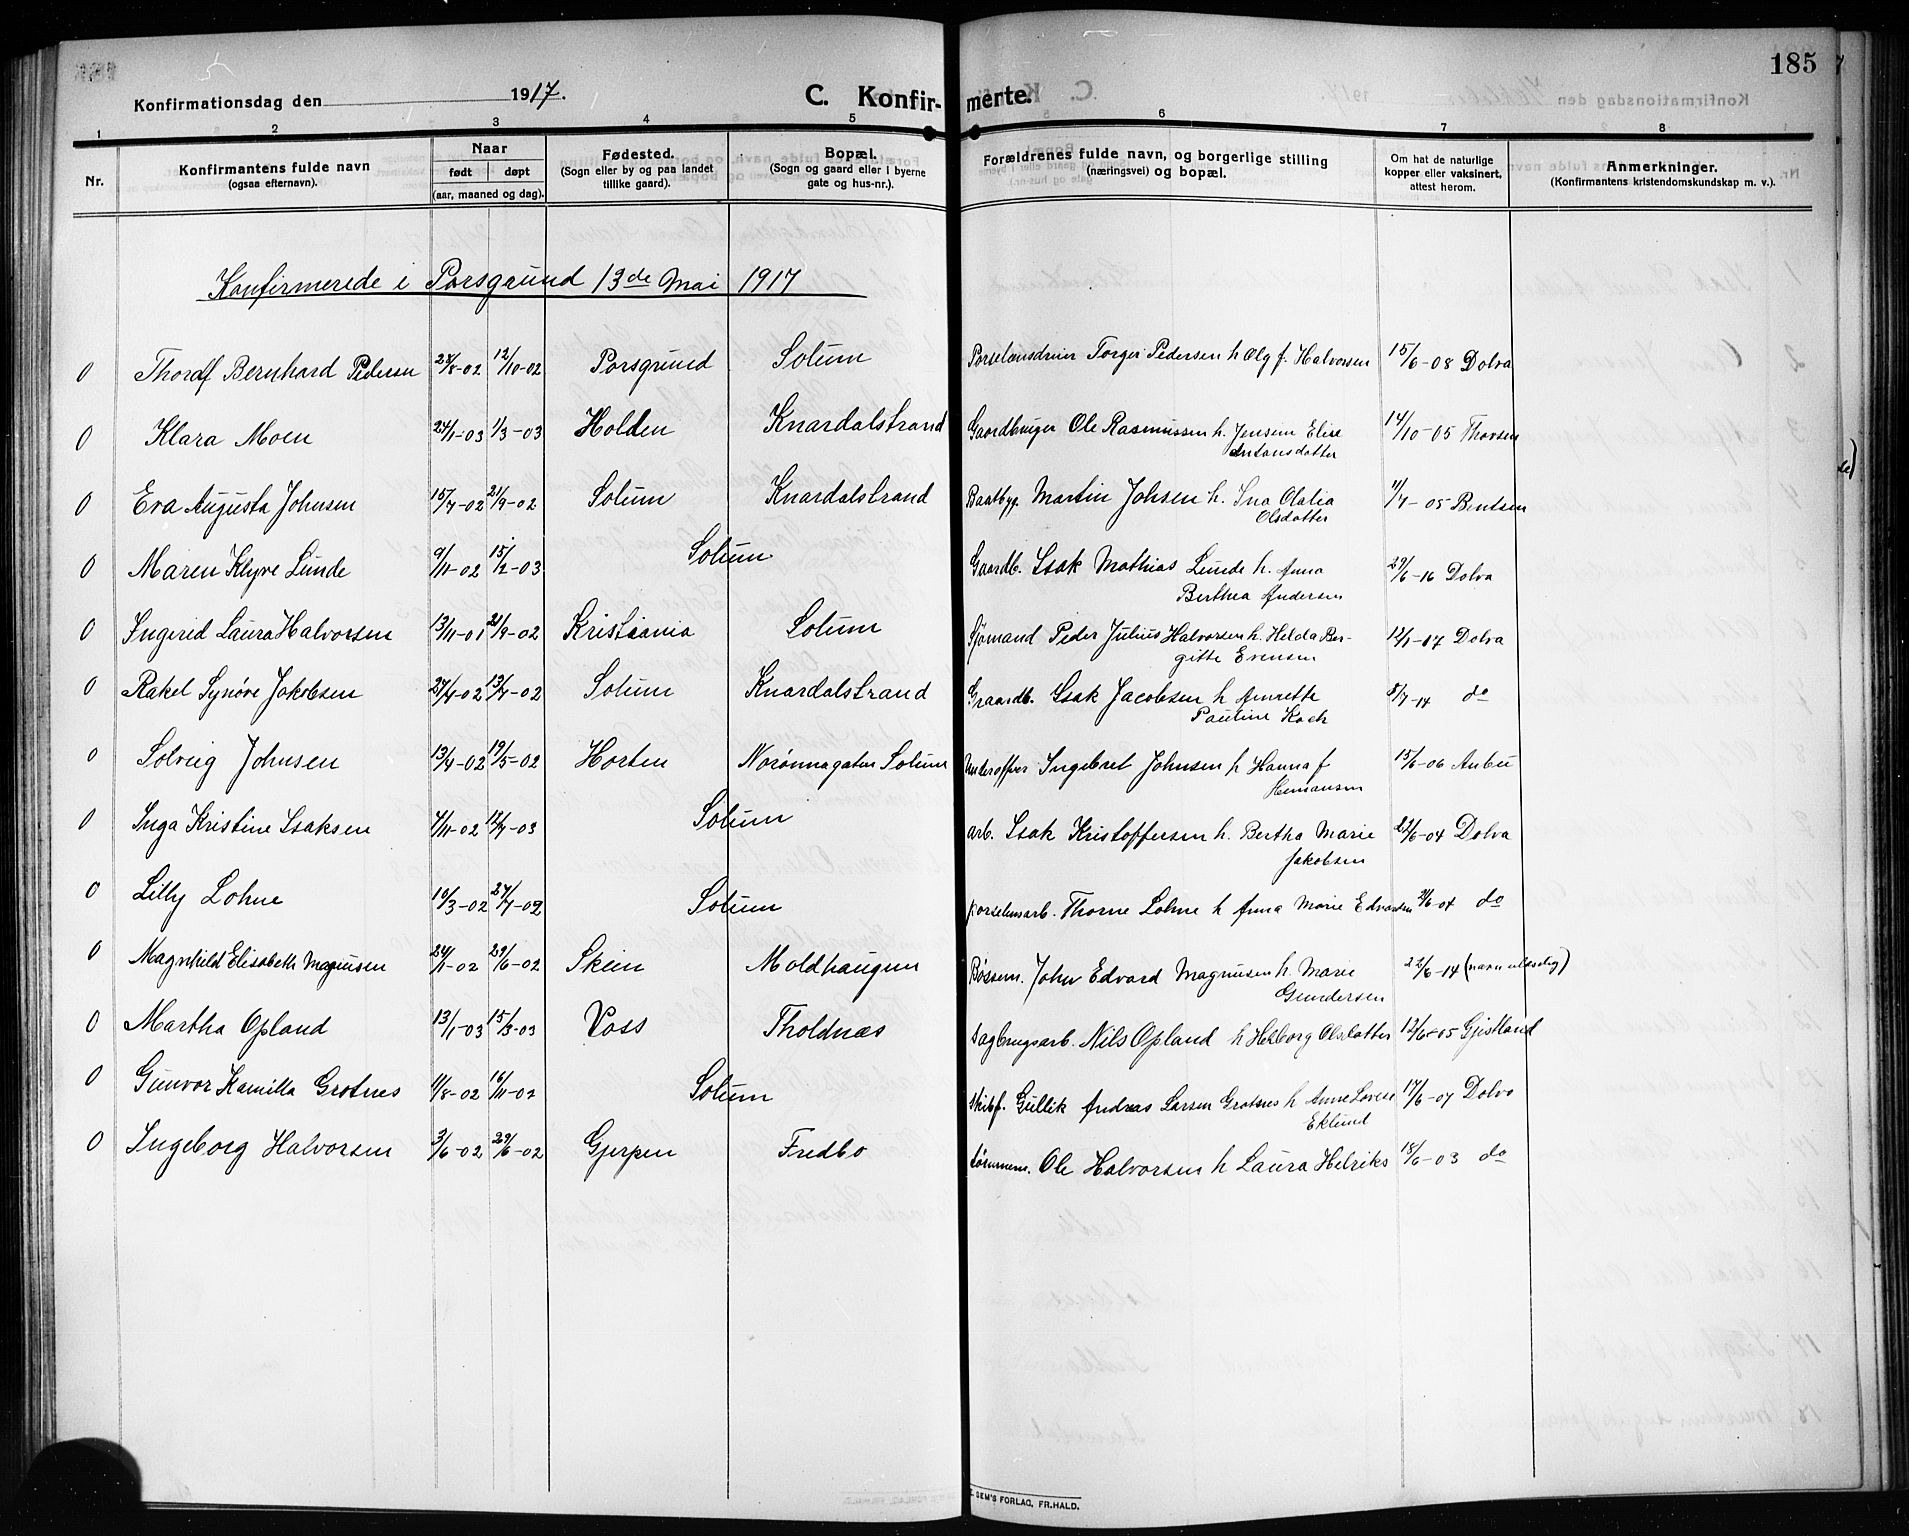 185
Konfirmationsdag den 1917.
C. Konfirmerte.
1 2 3 4 5 6 7 8
Nr.
Konfirmantens fulde navn
(ogsaa efternavn).
Naar
født døpt
(aar, maaned og dag).
Fødested.
(Sogn eller by og paa landet
tillike gaard).
Bopæl.
(Sogn og gaard eller i byerne
gate og hus-nr.).
Forældrenes fulde navn, og borgerlige stilling
(næringsvei) og bopæl.
Om hat de naturlige
kopper eller vaksinert,
attest herom.
Anmerkninger.
(Konfirmantens kristendomskundskap m. v.).
Konfirmerede i Porsgrund 13de Mai 1917
0 Thorolf Bernhard Pedersen 28/8-02 12/10-02 Porsgrund Solum Torger Pedersen h Olg f. Halvorsen 15/6-08 Dolva
0 Klara Moen 24/1-03 1/3-03 Holden Knardalstrand Gaardbruger Ole Rasmussen h. Jensein Elise 14/10-05 Thorsen
Antonsdatter
0 Eva Augusta Johnsen 15/7-02 21/9-02 Solum Knardalstrand Baatbyg. Martin Johsen h. Ina Olalia 11/7-05 Bentsen
Olsdatter
0 Maren Klyve Lunde 9/11-02 15/2-03 Solum Gaardb. Isak Mathias Lunde h. Anna 29/6-16 Dolva
Berthea Andersen
0 Ingerid Laura Halvorsen 13/11-01 21/9-02 Kristiania Solum Sjømand Peder Julius Halvorsen h. Helda Ber- 12/1-17 Dolva
gitte Evensen
0 Rakel Synøve Jakobsen 27/4-02 13/7-02 Solum Knardalstrand Graardb. Isak Jacobsen h Annette 8/7-14 do
Pauline Koch
0 Solveig Johnsen 13/4-02 19/5-02 Horten Norønnagaten Solum Underoffiser Ingebret Johnsen h Hanna f 15/6-06 Anbu
Hemansen
0 Inga Kristine Isaksen 4/11-02 12/7-03 Solum arb. Isak Kristoffersen h. Bertha Marie 22/6-04 Dolva
Jakobsen
0 Lilly Lohne 10/3-02 27/7-02 Solum porselensarb. Thorne Lohne h Anna Marie Edvardsen 21/6-04 do
0 Magnhild Elisabeth Magnusen 24/1-02 29/6-02 Skien Moldhaugen Bøssem. John Edvard Magnusen h. Marie 22/6-14 (navn ulæselig)
Gundersen
0 Martha Opland 13/1-03 15/3-03 Voss Tholdnæs Sagbrugsarb. Nils Opland h Helborg Olsdatter 12/6-05 Gjistland
0 Gunvor Kamilla Grotnes 11/8-02 16/11-02 Solum Skibsf. Gullik Andreas Larsen Grotenes h Anne Lovise 17/6-07 Dolva
Eklund
0 Ingeborg Halvorsen 3/6-02 29/6-02 Gjerpen Fredbo Tømmerm. Ole Halvorsen h Laura Helriks 18/6-03 do
SEM'S FORLAG, FR.HALD.